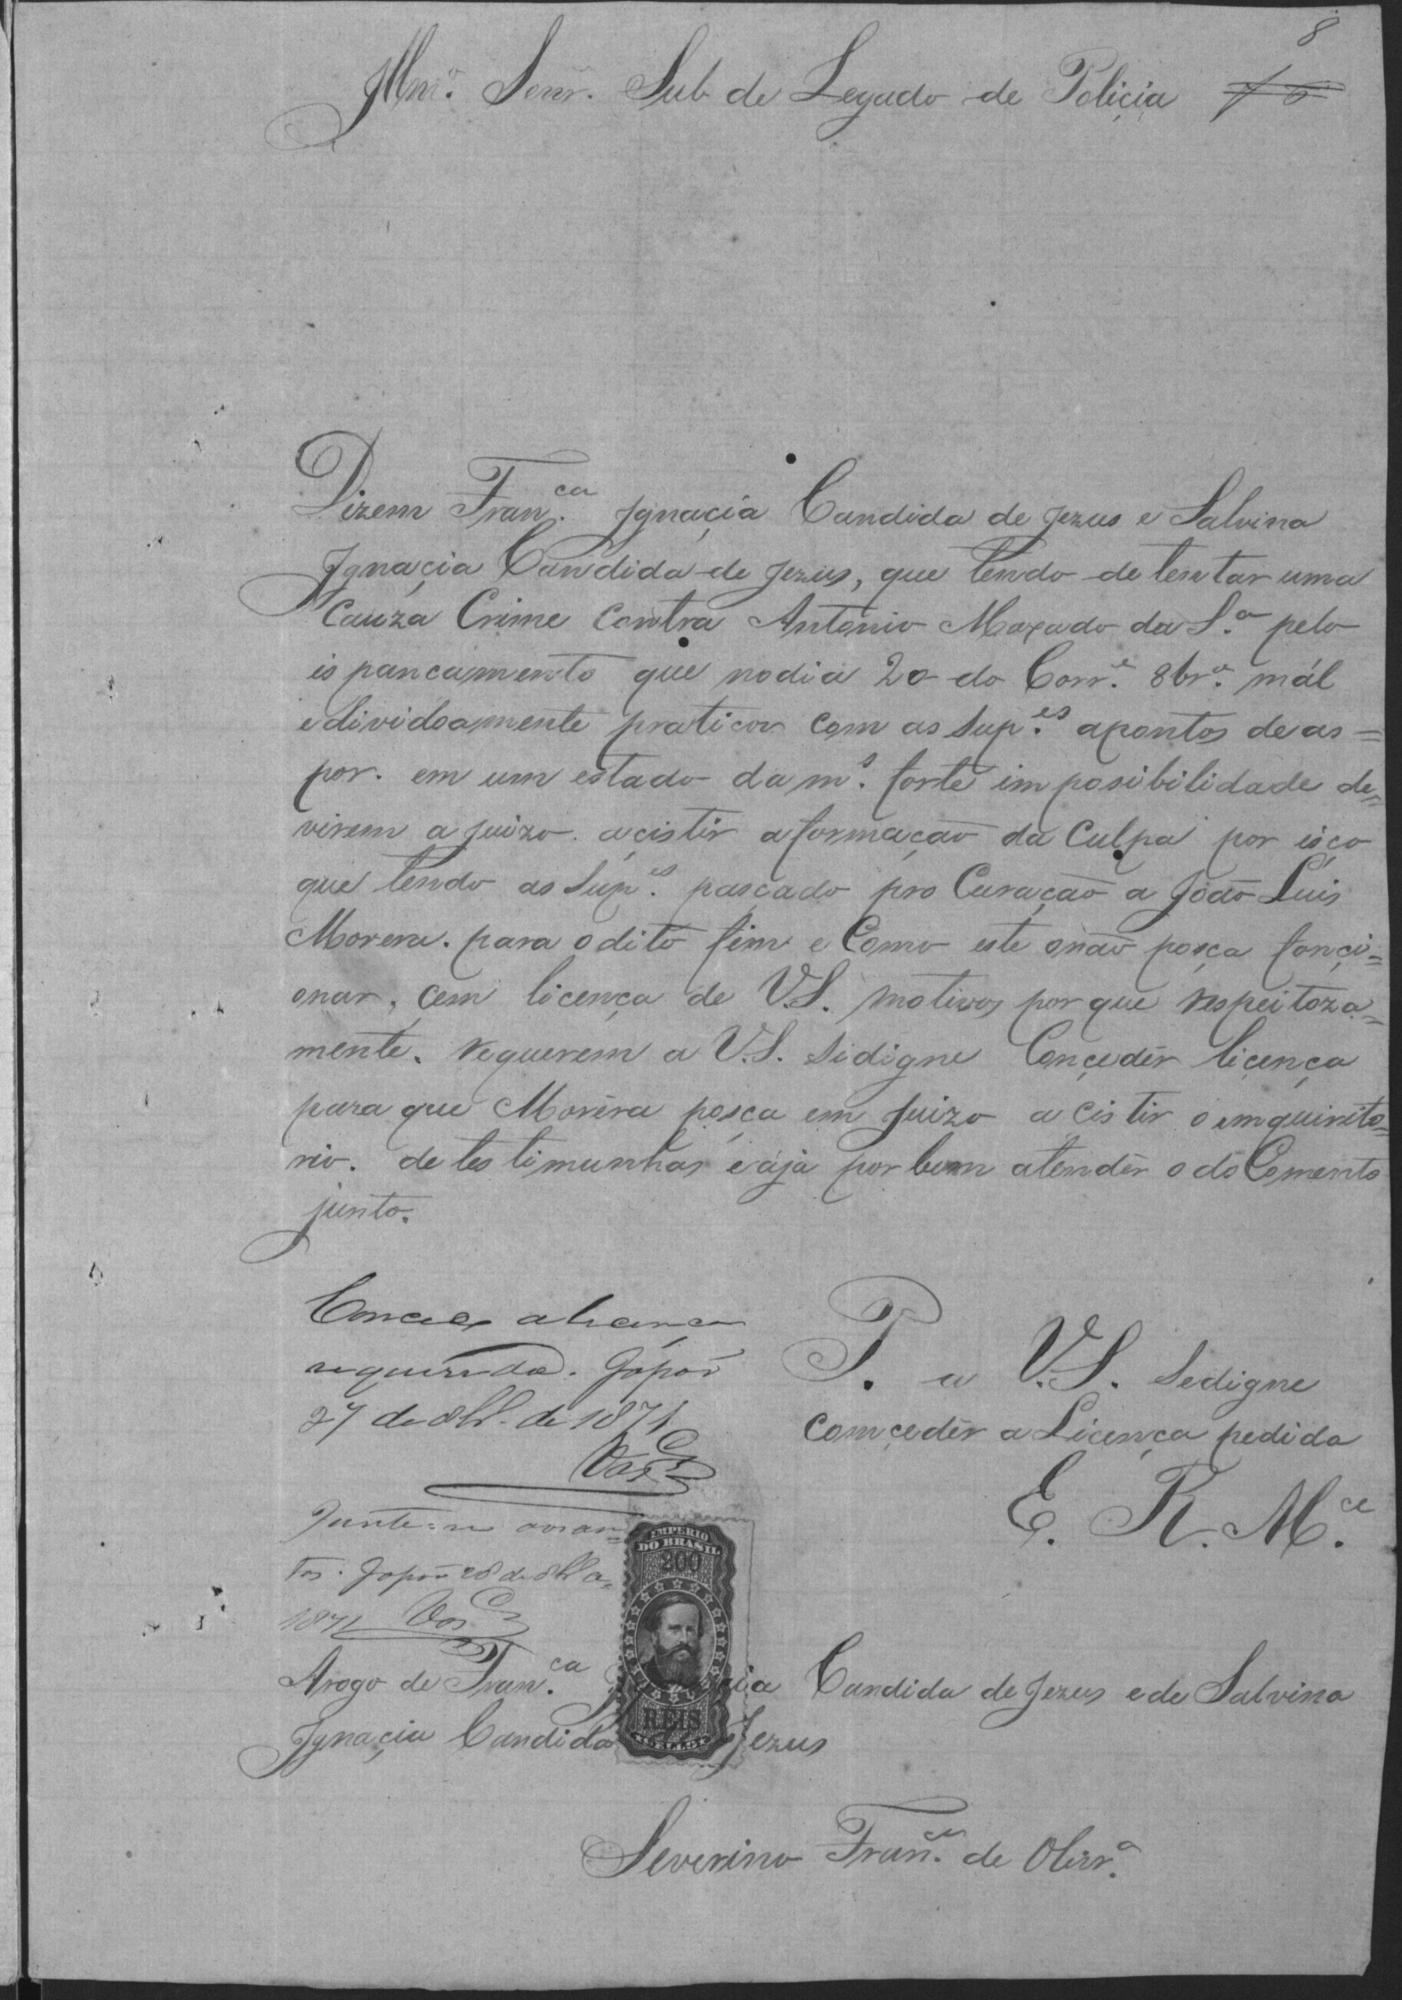 8
Illmo. Senr. Sub de Legado de Policia
Dizem Fran.ca Ignaçia Candida de Jezus e Salvina
Ignaçia Candida de Jezus, que tendo de tentar uma
Cauza Crime Contra Antonio Maxado da S.a pelo
ispancamento que no dia 20 do Corr.e 8br.o mál
edividoamente praticou com as Sup.es apontos de as=
por. em um estado da m.s forte imposibilidade de=
virem a juizo acistir aformação da Culpa por isço
que tendo as Sup.es pasçado pro Curação a João Luis
Morera. para odito fim e Como este onão posça fonçi=
onar, çem licença de V.S. motivos por que respeitoza=
mente. requerem a V.S. sidigne Conçedêr licença
para que Morêra posça em Juizo a cistir o imquirito=
rio. de testimunhas e ája por bem atendêr o do Comento
junto.
Concedo a licença
requerida. Japão
27 de 8br.o de 1871
P. a V.S. Sedigne
Comçedêr a Liçença pedida
E. R. M.ce
Junte-se aos au=
tos. Japão 28 de 8br.o
1871
IMPERIO
DO BRASIL
200
REIS
Arogo de Fran.ca Candida de Jezus e de Salvina
Ignaçia Candida Jezus
Severino Fran.co de Olivr.a